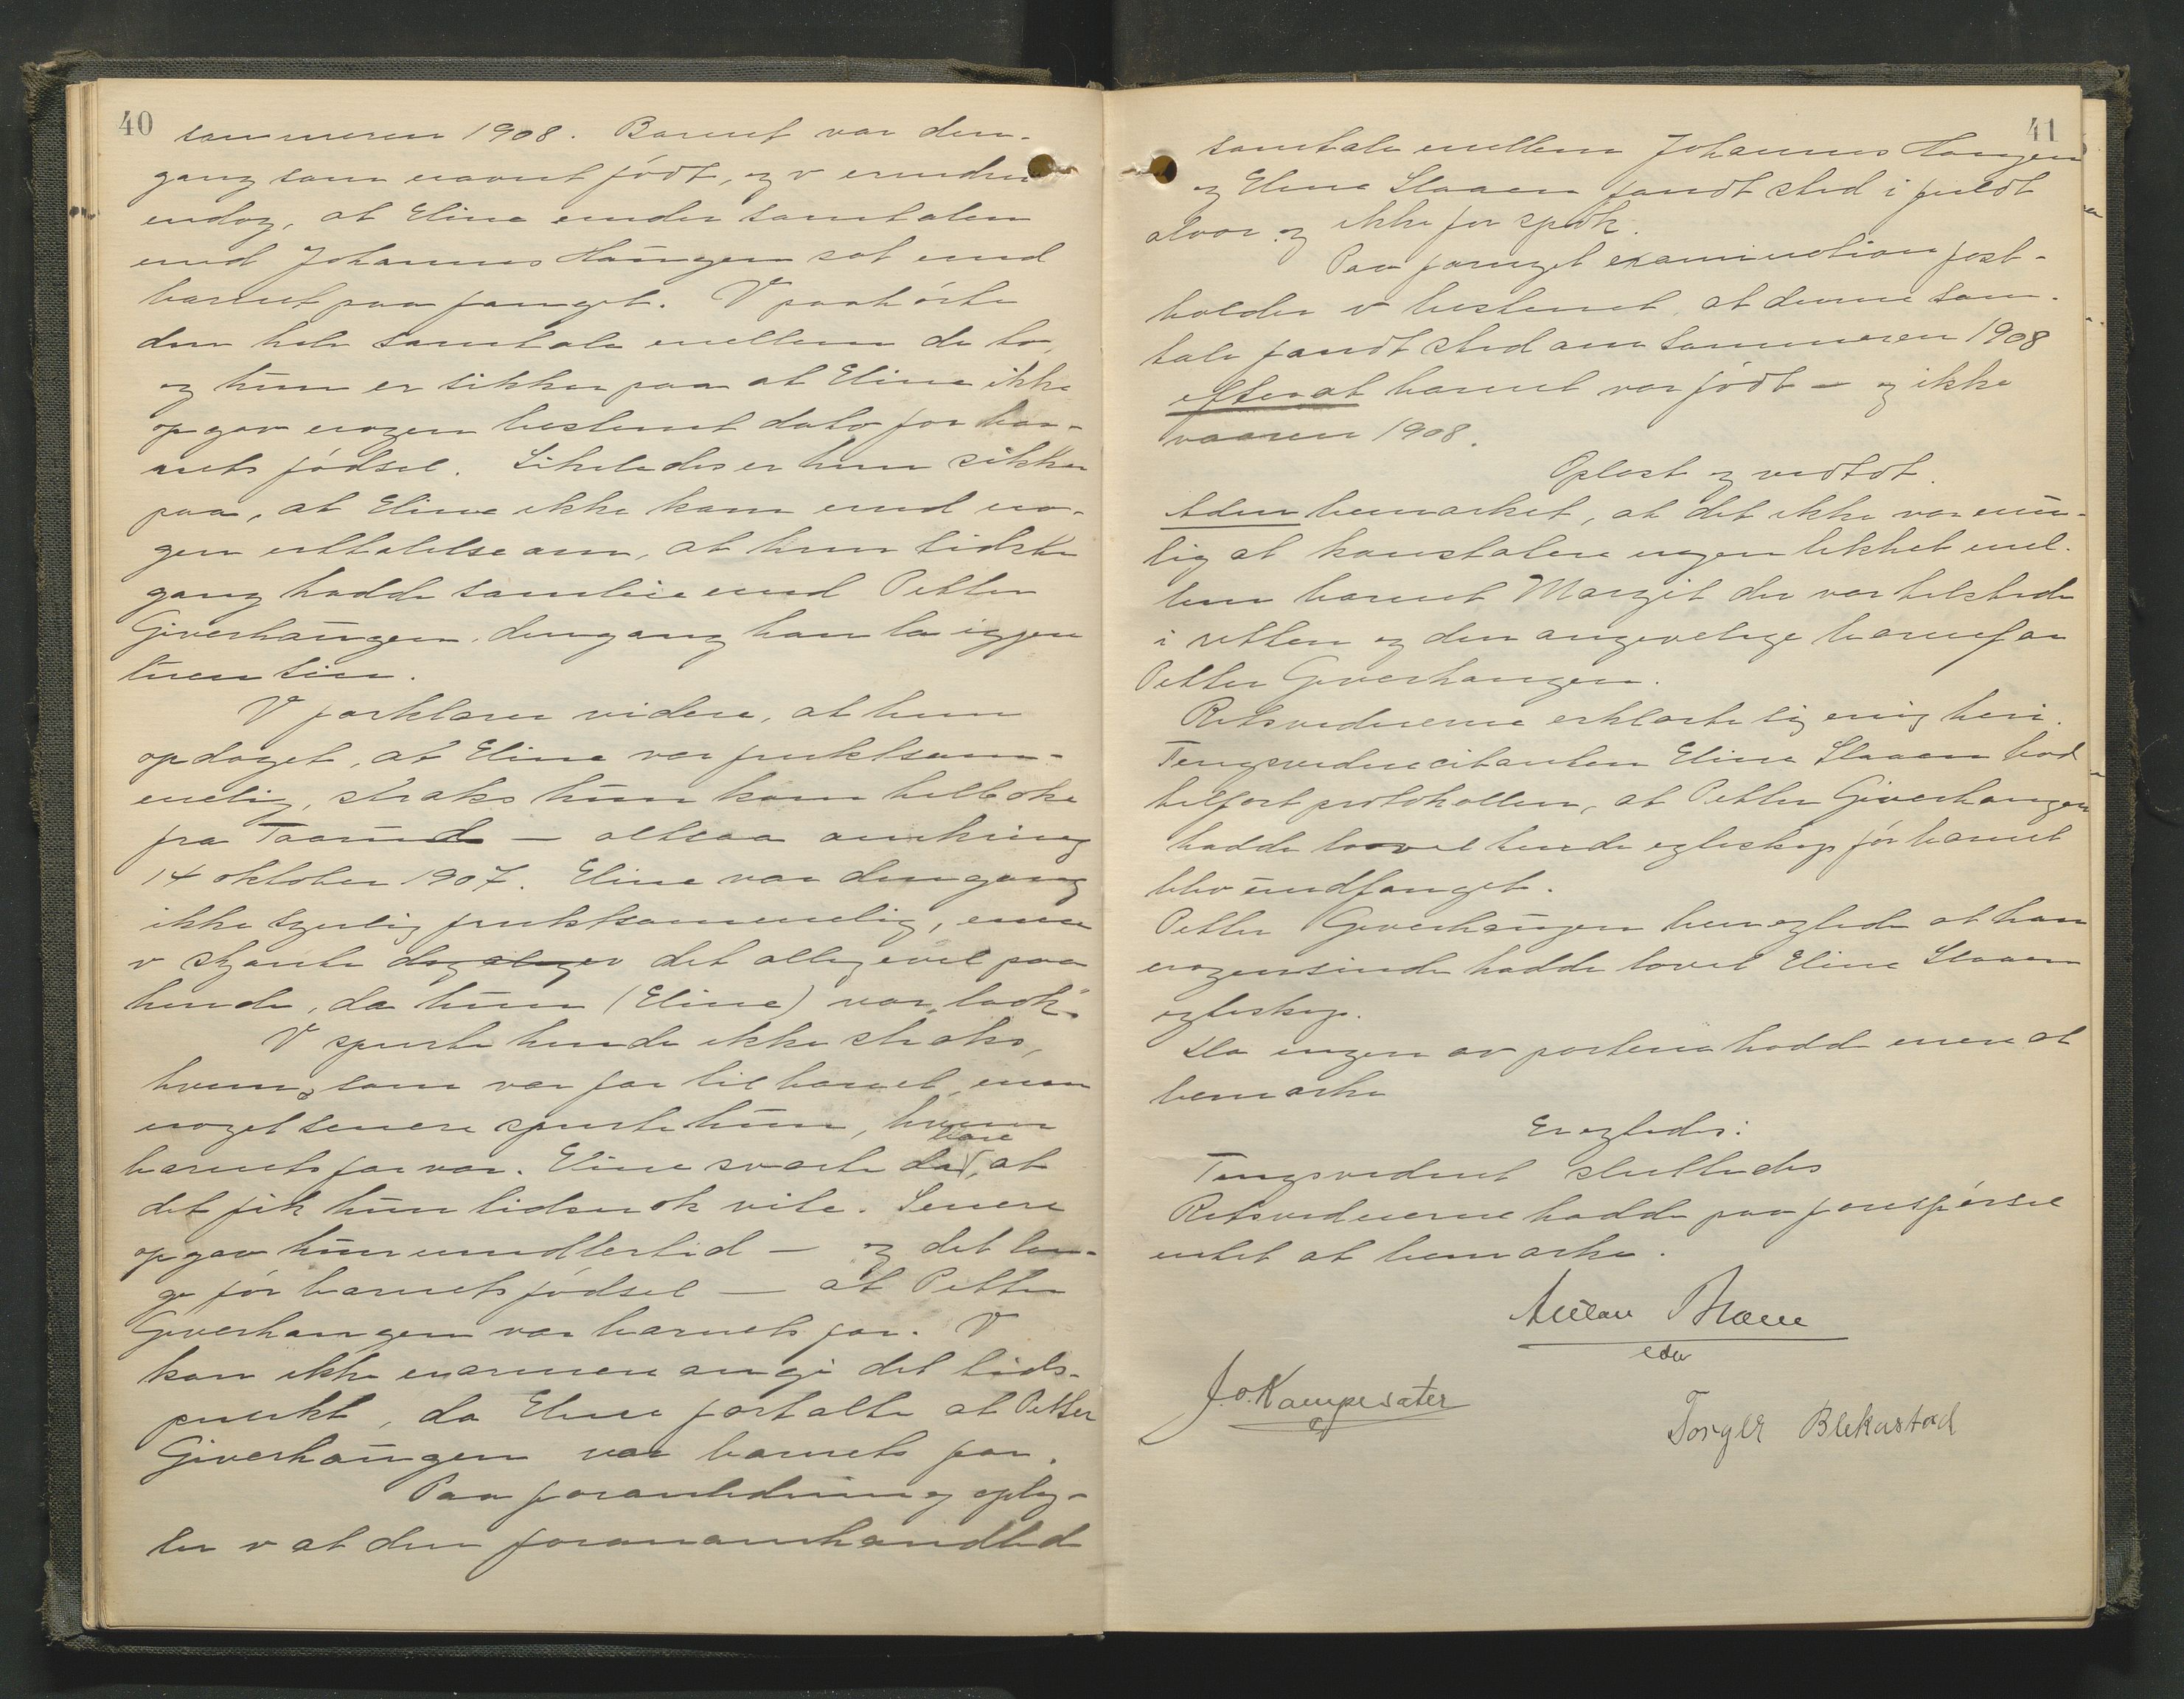 40
sommeren 1908. Barnet var den-
gang som nævnt født, og v erindrer
endog, at Eline under samtalen
med Johannes Haugen sat med
barnet paa fanget. V paahørte
den hele samtale mellem de to,
og hun er sikker paa at Eline ikke
opgav nogen bestemt dato for bar-
nets fødsel. Likeledes er hun sikker
paa, at Eline ikke kom med no-
gen uttalelse om, at hun sidste
gang hadde samleie med Petter
Giverhaugen, dengang han la igjen
luen sin.
V forklarer videre, at hun
opdaget, at Eline var fruktsom-
melig, straks hun kom tilbake
fra Taarud — altsaa omkring
14 oktober 1907. Eline var dengang
ikke synlig fruktsommelig, men
v skjønte det alligevel paa
hende, da hun (Eline) var "laak".
V spurte hende ikke straks,
hvem, som var far til barnet, men
noget senere spurte hun, hvem
barnets far var. Eline svarte da bare, at
det fik hun tidsnok vite. Senere
opgav hun imidlertid — og det læn-
ge før barnets fødsel — at Petter
Giverhaugen var barnets far. V
kan ikke nærmere angi det tids-
punkt, da Eline fortalte at Petter
Giverhaugen var barnets far.
Paa foranledning oply-
ser v at den foranomhandlede
41
samtale mellem Johannes Haugen
og Eline Slaaen fandt sted i fuldt
alvor og ikke for spøk.
Paa fornyet examination fast-
holder v bestemt, at denne sam-
tale fandt sted om sommeren 1908
efter at barnet var født — og ikke
vaaren 1908.
Oplæst og vedtat.
Adm bemærket, at det ikke var mu-
lig at konstatere nogen likhet mel-
lem barnet Margit der var tilstede
i retten og den angivelige barnefar
Petter Giverhaugen.
Retsvidnerne erklærte sig enig heri.
Tingsvidnecitanten Eline Slaaen bad
tilført protokollen, at Petter Giverhaugen
hadde lovet hende egteskap før barnet
blev undfanget.
Petter Giverhaugen benegtede at han
nogensinde hadde lovet Eline Slaaen
egteskap.
Da ingen av parterne hadde mere at
bemærke
Eragtedes:
Tingsvidnet sluttedes
Retsvidnerne hadde paa forespørsel
intet at bemærke.
J. O. Kampesæter
Torger Blekastad